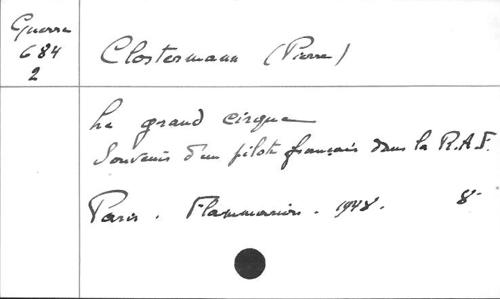 Guerre
684
2
Clostermann (Pierre)
Le grand cirque
Souvenirs d'un pilote français dans la R.A.F.
Paris. Flammarion. 1948. 8°